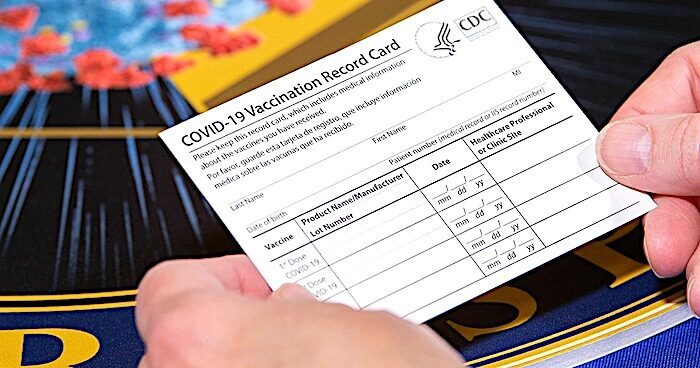 CDC
COVID-19 Vaccination Record Card
Please keep this record card, which includes medical information
about the vaccines you have received.
Por favor, guarde esta tarjeta de registro, que incluye información
médica sobre las vacunas que ha recibido.
Last Name First Name MI
Date of birth Patient number (medical record or IIS record number)
Vaccine Product Name/Manufacturer Date Healthcare Professional
Lot Number or Clinic Site
1st Dose
COVID-19
mm dd yy
Dose
COVID-19
mm dd yy
mm dd yy
mm dd yy